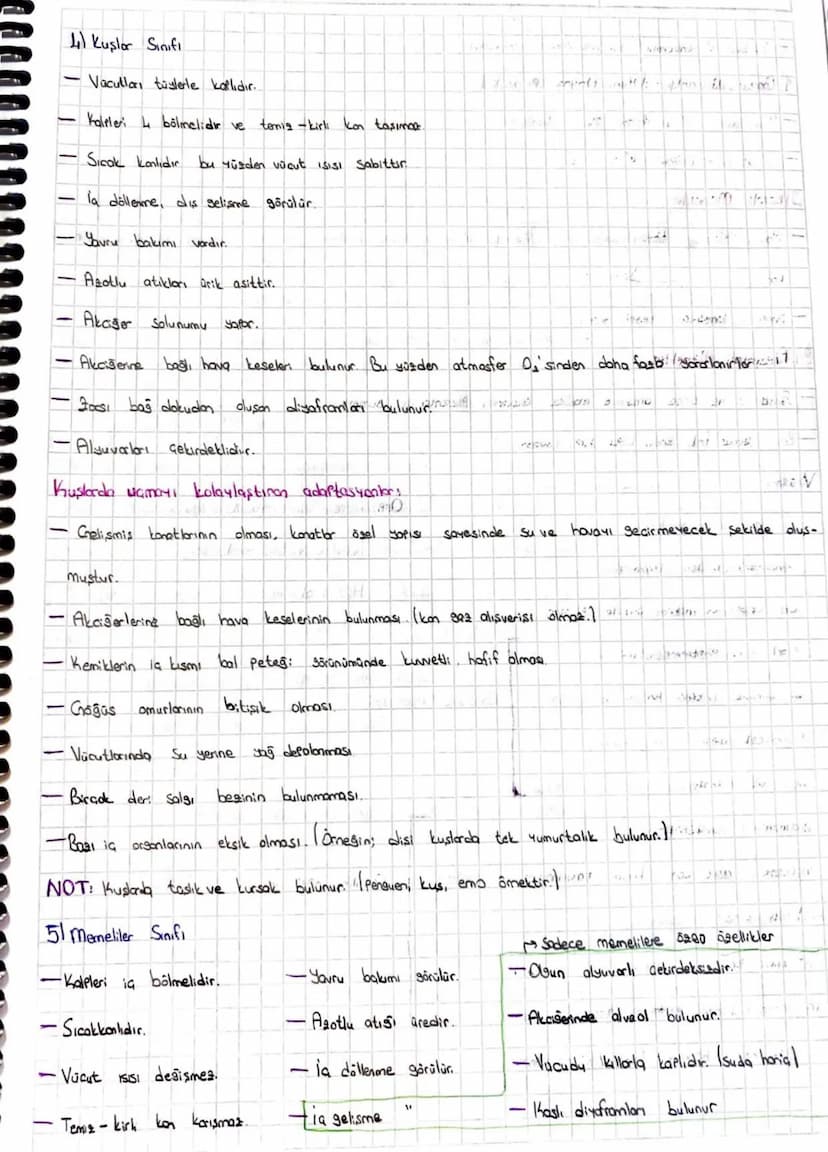 4) Kuşlar Sınıfı
— Vücutları tüylerle kaplıdır.
— Kalpleri 4 bölmelidir ve temiz-kirli kan taşımaz
— Sıcak kanlıdır bu yüzden vücut ısısı sabittir
— İç döllenme, dış gelişme görülür.
— Yavru bakımı vardır.
— Azotlu atıkları ürik asittir.
— Akciğer solunumu yapar.
— Akciğerine bağlı hava keseleri bulunur. Bu yüzden atmosfer O₂'sinden daha fazla yararlanırlar
— bağ dokudan oluşan diyaframları bulunur.
— Alyuvarları çekirdeklidir.
Kuşlarda uçmayı kolaylaştıran adaptasyonlar:
— Gelişmiş kanatlarının olması, kanatlar özel yapısı sayesinde su ve havayı geçirmeyecek şekilde oluş-
muştur.
— Akciğerlerine bağlı hava keselerinin bulunması. (kan gaz alışverişi olmaz.)
— Kemiklerin iç kısmı bal peteği görünümünde kuvvetli, hafif olması
— Göğüs omurlarının bitişik olması.
— Vücutlarında su yerine yağ depolanması
— Birçok deri salgı bezinin bulunmaması.
— Bazı iç organlarının eksik olması. (Örneğin; dişi kuşlarda tek yumurtalık bulunur.)
NOT: Kuşlarda taşlık ve kursak bulunur. (Penguen; kuş, ama örnektir.)
5) Memeliler Sınıfı
— Kalpleri iç bölmelidir.
— Sıcakkanlıdır.
— Vücut ısısı değişmez.
— Temiz-kirli kan karışmaz.
— Yavru bakımı görülür.
— Azotlu atığı üredir.
— İç döllenme görülür.
— İç gelişme "
→ Sadece memelilere özgü özellikler
— Olgun alyuvarlı çekirdeksizdir.
— Akciğerinde alveol bulunur.
— Vücudu kıllarla kaplıdır. (Suda hariç)
— Kaslı diyaframları bulunur